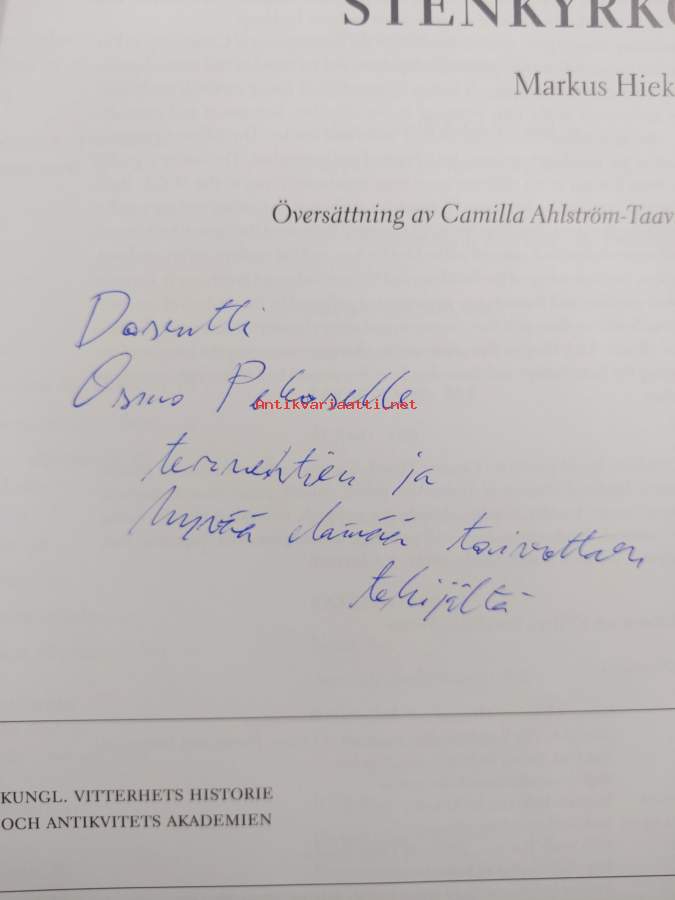 STENKYRKO
Markus Hiek
Översättning av Camilla Ahlström-Taav
Dosentti
Osmo Pekoselle
Antikvariaatti.net
tervehtien ja
hyvää elämää toivottaen
tekijältä
KUNGL. VITTERHETS HISTORIE
OCH ANTIKVITETS AKADEMIEN